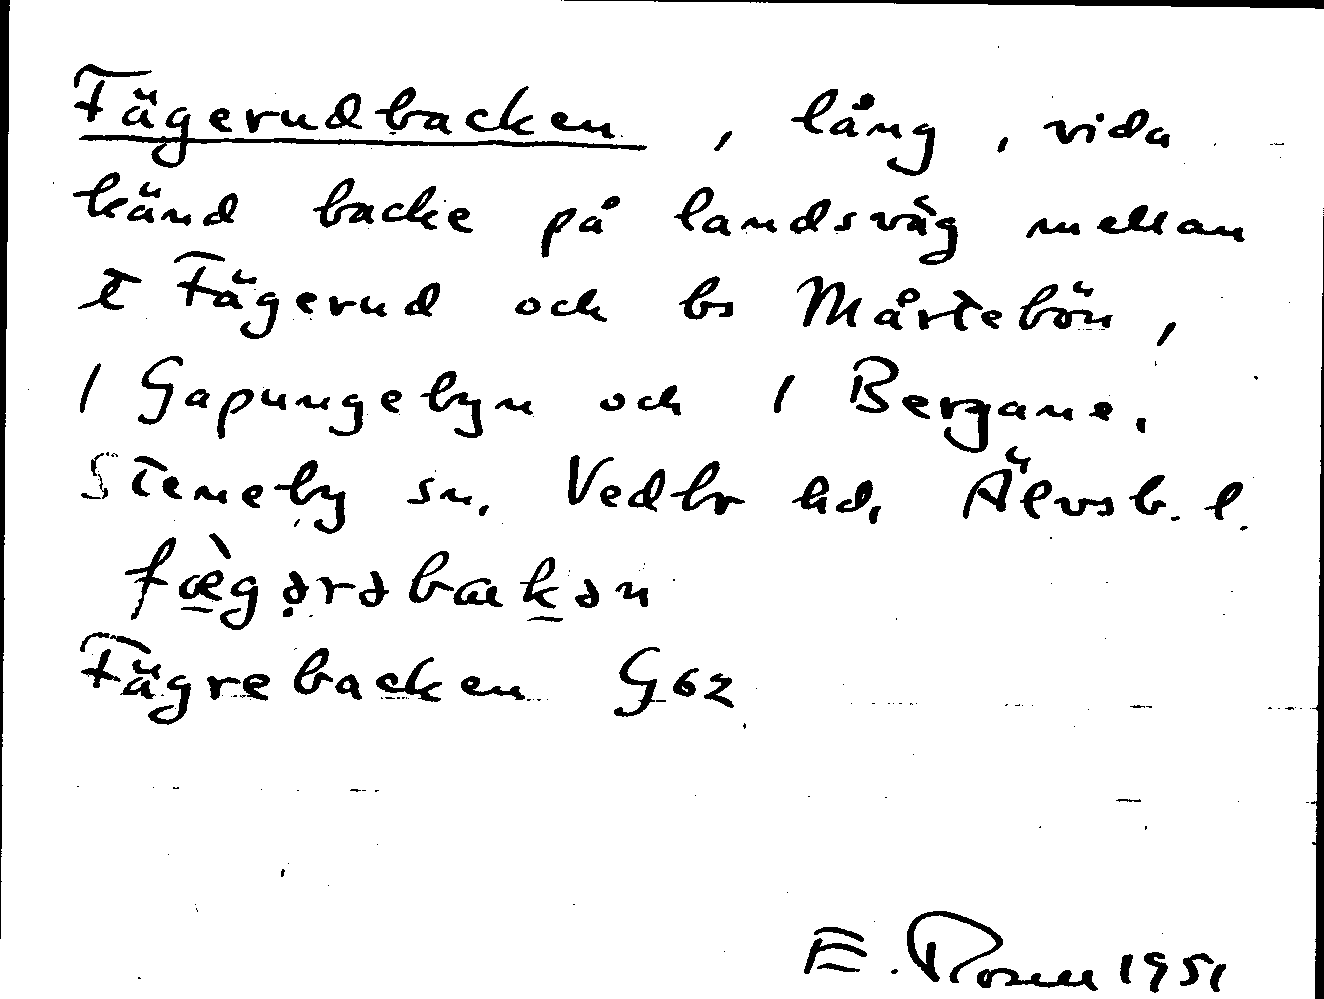 Fägerudbacken, lång, vida
känd backe på landsväg mellan
t Fägerud och bs Mårtebön,
1 Gapungebyn och 1 Bergane.
Steneby sn. Vedbr hd. Älvsb. l.
fæ̀gərəbakən
Fägrebacken G62
E. Rosell 1951